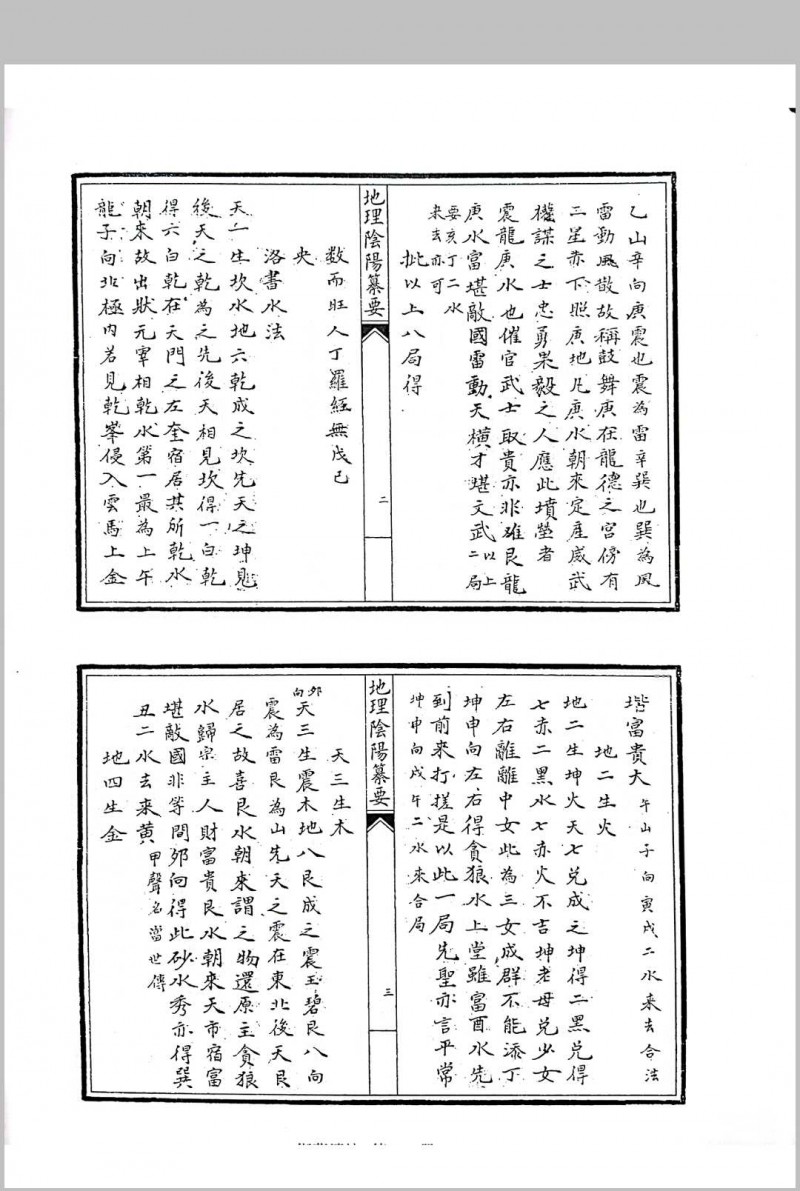 乙山辛向庚震也震為雷辛巽也巽為風
雷動風散故稱鼓舞庚在龍德之宮傍有
二星亦下照庚地凡庚水朝來定産威武
權謀之士忠勇果毅之人應此墳塋者
震龍庚水也催官武士取貴亦非雖艮龍
庚水富堪敵國雷動天橫才堪文武以上二局
要亥丁二水
來去亦可
批以上八局得
地理陰陽纂要
二
数而旺人丁羅經無戊己
央
洛書水法
天一生坎水地六乾成之坎先天之坤見
後天之乾為之先後天相見坎得一白乾
得六白乾在天門之左奎宿居其所乾水
朝來故出狀元宰相乾水第一最為上午
龍子向北極內若見乾峯侵入雲馬上金
堦富貴大 午山子向寅戌二水来去合法
地二生火
地二生坤火天七兌成之坤得二黑兌得
七赤二黑水七赤火不吉坤老母兌少女
左右離離中女此為三女成群不能添丁
坤申向左右得貪狼水上堂雖富酉水先
到前来打搓是以此一局先聖亦言平常
坤申向戌午二水来合局
地理陰陽纂要
三
天三生木
卯向
天三生震木地八艮成之震玉碧艮八向
震為雷艮為山先天之震在東北後天艮
居之故喜艮水朝來謂之物還原主貪狼
水歸宗主人財富貴艮水朝来天市宿富
堪敵國非等間邜向得此砂水秀亦得巽
丑二水去来黄甲聲名當世傳
地四生金